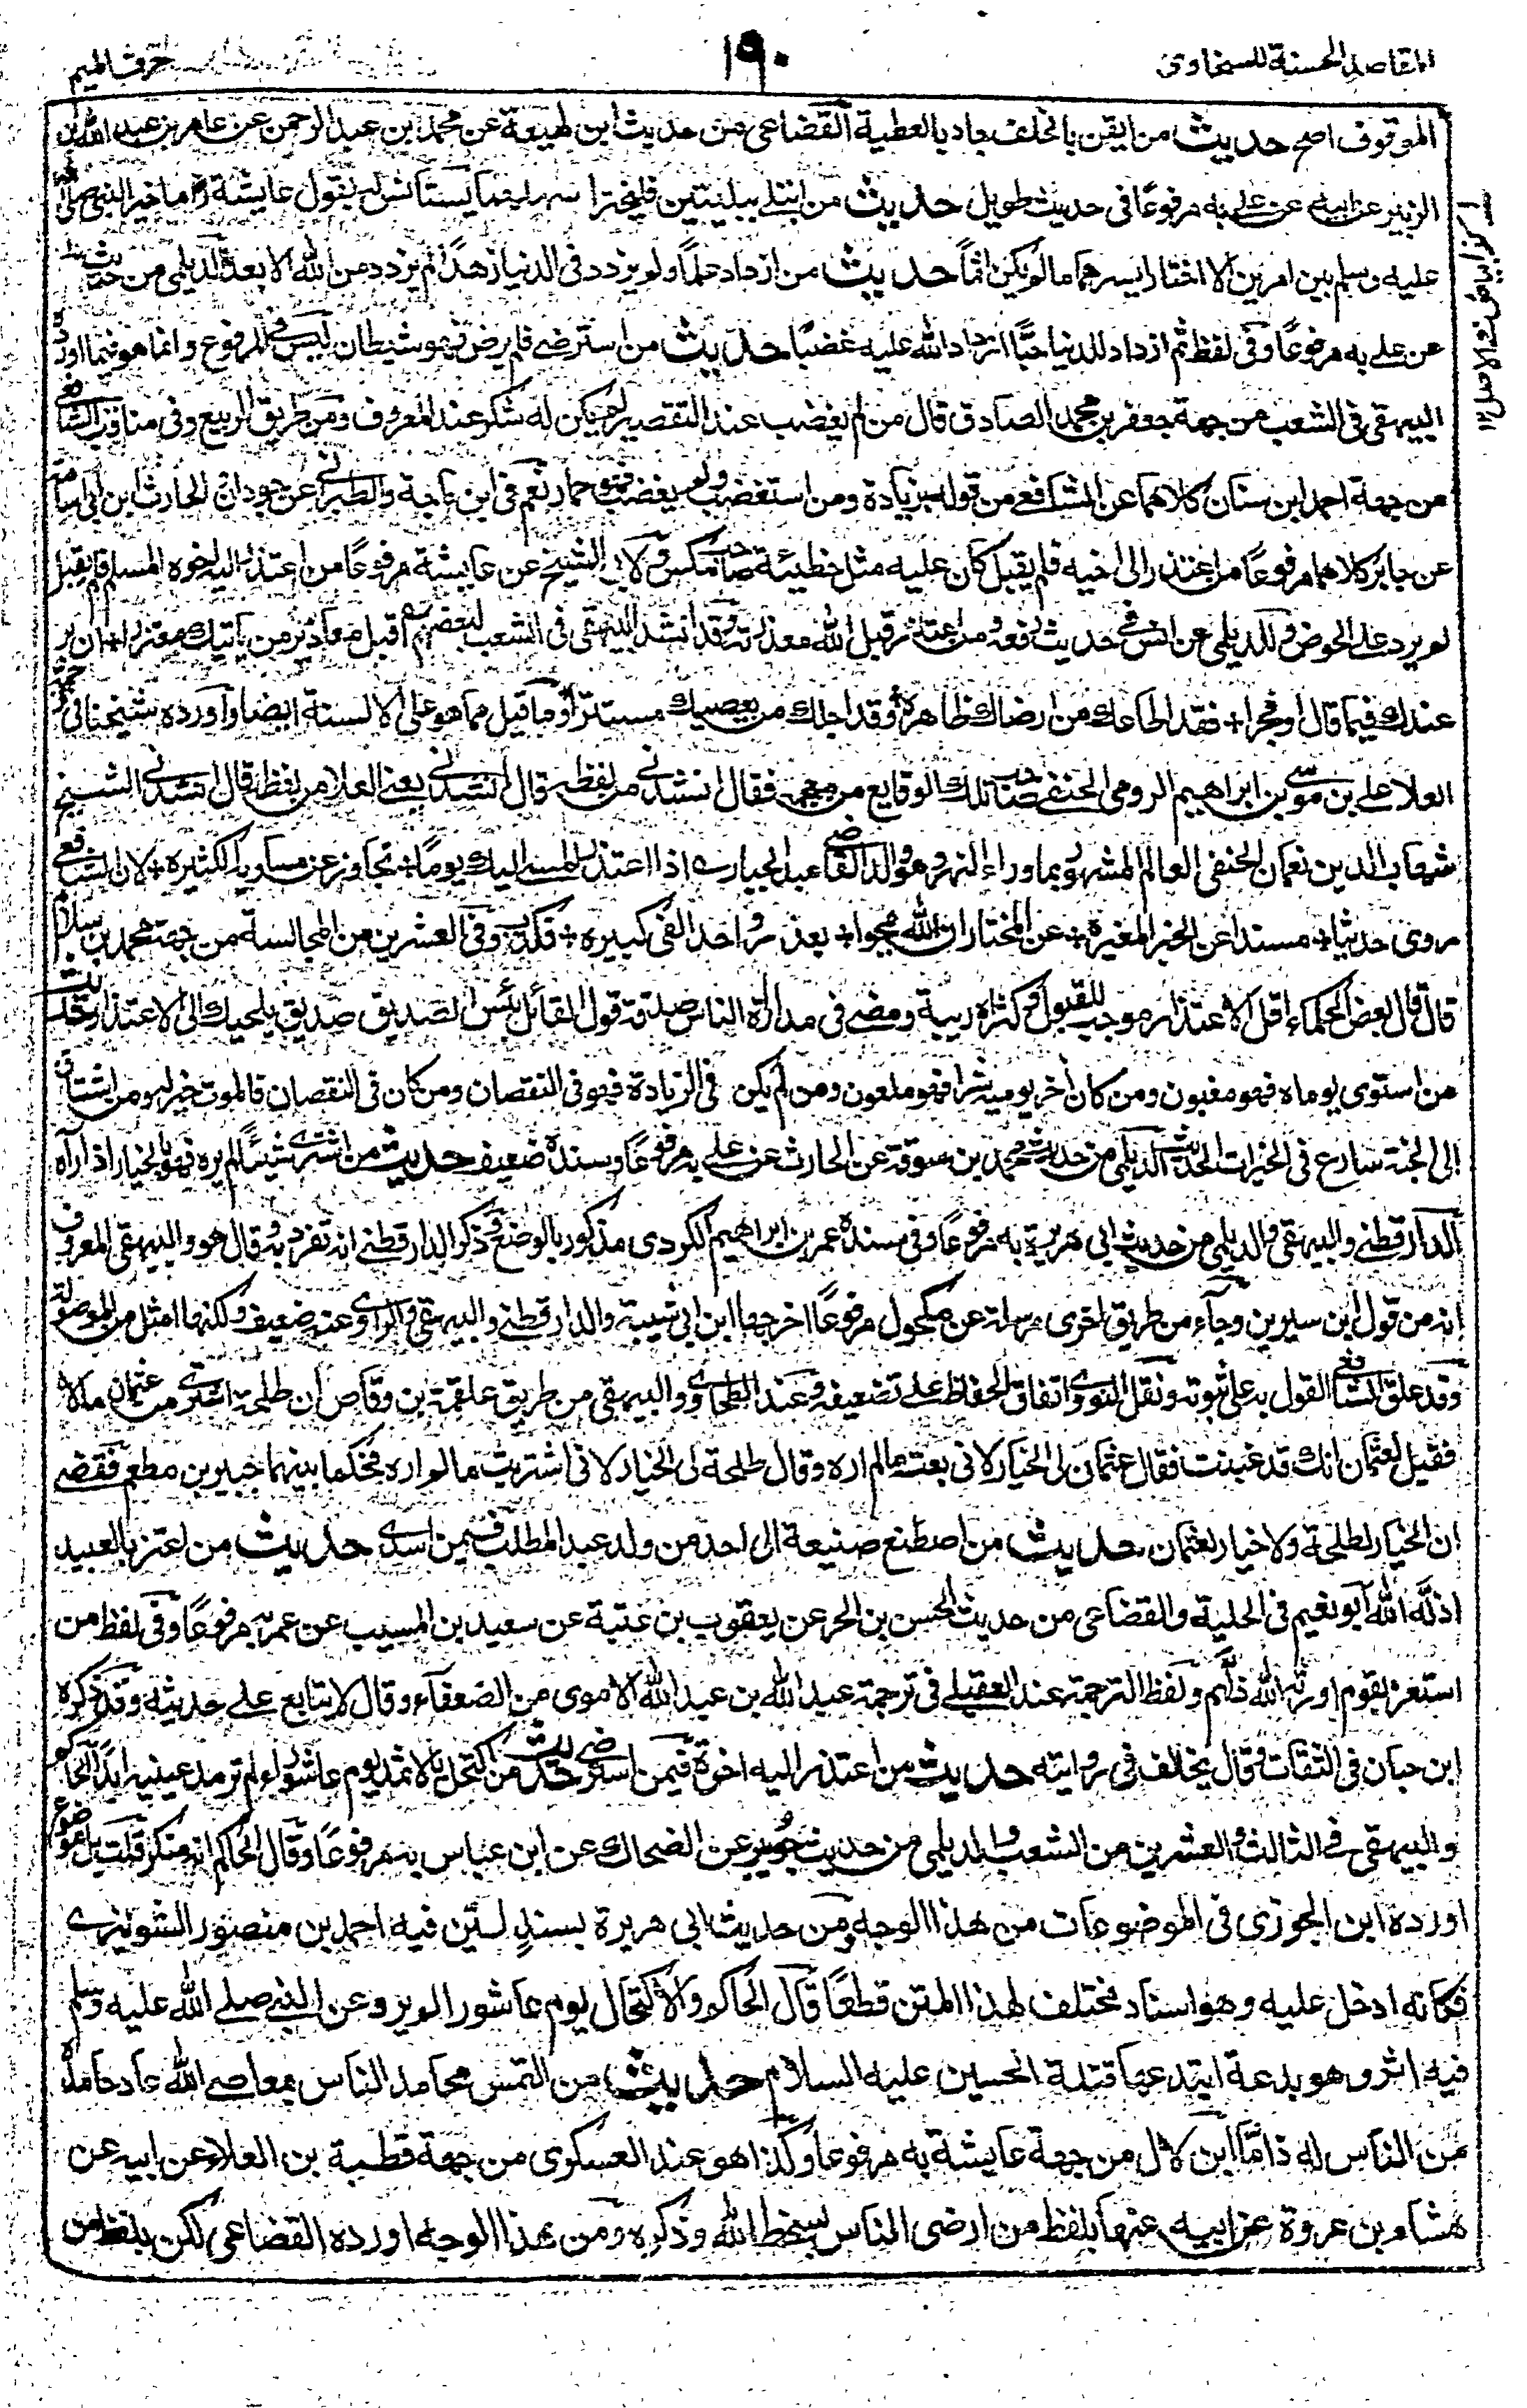 المقاصد الحسنة للسخاوى
١٩٠
حرف الميم
الموقوف اصح حديث من ايقن بالخلف جاد بالعطية القضاعى من حديث ابن لهيعة عن محمد بن عبد الرحمن عن عامر بن عبد الله بن
الزبير عن ابيه عن على به مرفوعًا فى حديث طويل حديث من ابتلى ببليتين فليختر اسهلهما يستانس له بقول عايشة ما خير النبى صلى الله
عليه وسلم بين امرين الا اختار ايسرهما ما لم يكن اثماً حديث من ازداد علماً ولم يزدد فى الدنيا زهداً لم يزدد من الله الا بعدا الديلمى من حديث
عن على به مرفوعًا وفى لفظ ثم ازداد للدنيا حبًّا ازداد الله عليه غضبًا حديث من استرضى فلم يرض فهو شيطان ليس فى المرفوع وانما هو فيما اورده
البيهقى فى الشعب من جهة جعفر بن محمد الصادق قال من لم يغضب عند التقصير لم يكن له شكر عند المعروف ومن طريق الربيع وفى مناقب الشافعى
من جهة احمد ابن سنان كلاهما عن الشافعى من قوله بزيادة ومن استغضب ولم يغضب فهو حمار نعم فى ابن ماجة والطبرانى عن جودان والحارث ابن ابى اسامة
عن جابر كلاهما مرفوعًا من اعتذر الى اخيه فلم يقبل كان عليه مثل خطيئة صاحب مكس ولابى الشيخ عن عايشة مرفوعًا من اعتذر اليه اخوه المسلم فلم يقبل
لم يرد على الحوض وللديلمى عن انس فى حديث رفعه ومن اعتذر قبل الله معذرته وقد انشد البيهقى فى الشعب لبعضهم اقبل معاذير من ياتيك معتذرا + ان بر
عندك فيما قال او فجرا + فقد اطاعك من ارضاك ظاهره + وقد اجلك من يعصيك مستترا ومما قيل مما هو على الالسنة ايضا واورده شيخنا فى ترجمة
العلا على بن موسى بن ابراهيم الرومى الحنفى صاحب تلك الوقايع من معجمه فقال انشدنى من لفظه قال انشدنى يعنى العلا من لفظه قال انشدنى الشيخ
شهاب الدين نعمان الحنفى العالم المشهور بما وراء النهر وهو والد القاضى عبد الجبار اذا اعتذر المسئ اليك يوما + تجاوز عن مساويه الكثيره + لان الشافعى
روى حديثا + مسندا عن الخبر المغيره + عن المختار ان الله يمحوا + بعذر واحد الفى كبيره + فكتب وفى العشرين من المجالسة من جهة محمد بن سلام
قال قال بعض الحكماء اقل الاعتذار موجب للقبول وكثرته ريبة ومضى فى مداراة الناس صدقة قول القائل بئس الصديق صديق يلجيك الى الاعتذار حديث
من استوى يوماه فهو مغبون ومن كان آخر يوميه شرا فهو ملعون ومن لم يكن فى الزيادة فهو فى النقصان ومن كان فى النقصان فالموت خير له ومن اشتاق
الى الجنة سارع فى الخيرات الحديث الديلمى من حديث محمد بن سوقة عن الحارث عن على به مرفوعًا وسنده ضعيف حديث من اشترى شيئًا لم يره فهو بالخيار اذا رآه
الدارقطنى والبيهقى والديلمى من حديث ابى هريرة به مرفوعًا وفى سنده عمر بن ابراهيم الكردى مذكور بالوضع وذكر الدارقطنى انه تفرد به وقال هو والبيهقى المعروف
انه من قول ابن سيرين وجاء من طريق اخرى مرسلة عن مكحول مرفوعًا اخرجها ابن ابى شيبة والدارقطنى والبيهقى والراوى عنه ضعيف ولكنها امثل من الموصولة
وقد علق الشافعى القول به على ثبوته ونقل النووى اتفاق الحفاظ على تضعيفه وعند الطحاوى والبيهقى من طريق علقمة بن وقاص ان طلحة اشترى من عثمان مالا
فقيل لعثمان انك قد غبنت فقال عثمان لى الخيار لانى بعت ما لم اره وقال طلحة لى الخيار لانى اشتريت ما لم اره فحكما بينهما جبير بن مطعم فقضى
ان الخيار لطلحة ولا خيار لعثمان حديث من اصطنع صنيعة الى احد من ولد عبد المطلب فيمن اسدى حديث من اعتز بالعبيد
اذلّه الله ابو نعيم فى الحلية والقضاعى من حديث الحسن بن الحر عن يعقوب بن عتبة عن سعيد بن المسيب عن عمر به مرفوعًا وفى لفظ من
استعز بقوم اورثه الله ذلهم ولفظ الترجمة عند العقيلى فى ترجمة عبد الله بن عبد الله الاموى من الضعفاء وقال لا يتابع على حديثه وقد ذكره
ابن حبان فى الثقات وقال يخالف فى روايته حديث من اعتذر اليه اخوه فيمن استرضى حديث من اكتحل بالاثمد يوم عاشوراء لم ترمد عينيه ابدًا الحاكم
والبيهقى فى الثالث والعشرين من الشعب والديلمى من حديث جويبر عن الضحاك عن ابن عباس به مرفوعًا وقال الحاكم انه منكر قلت بل موضوع
اورده ابن الجوزى فى الموضوعات من هذا الوجه ومن حديث ابى هريرة بسندٍ ليّن فيه احمد بن منصور الشونيزى
فكانه ادخل عليه وهو اسناد مختلف لهذا المتن قطعًا قال الحاكم والاكتحال يوم عاشورا لم يرو عن النبى صلى الله عليه وسلم
فيه اثر وهو بدعة ابتدعها قتلة الحسين عليه السلام حديث من التمس محامد الناس بمعاصى الله عاد حامده
من الناس له ذامًّا ابن لال من جهة عايشة به مرفوعًا وكذا هو عند العسكرى من جهة قطبة بن العلاء عن ابيه عن
هشام بن عروة عن ابيه عنها بلفظ من ارضى الناس بسخط الله وذكره ومن هذا الوجه اورده القضاعى لكن بلفظ من
كذا بياض فى الاصل ١٢